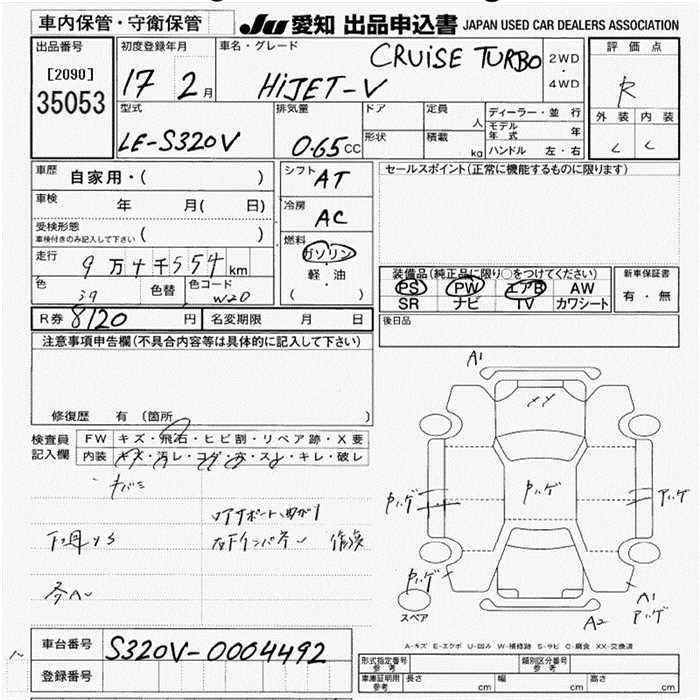 車内保管・守衛保管
JU 愛知 出品申込書 JAPAN USED CAR DEALERS ASSOCIATION
出品番号
[2090]
35053
初度登録年月
17 2 月
車名・グレード
CRUISE TURBO
HIJET-V
2WD
・
4WD
評価点
R
外装 内装
C C
型式
LE-S320V
排気量
0.65 CC
ドア
形状
定員
人
積載
kg
ディーラー・並行
モデル年式 年
ハンドル 左・右
車歴
自家用・( )
車検
年 月( 日)
受検形態
車検付きのみ記入して下さい ( )
走行
9万4千554 km
色
色替
色コード
W20
シフト
AT
冷房
AC
燃料
ガソリン
・
軽・油
( )
セールスポイント(正常に機能するものに限ります)
装備品(純正品に限り○をつけてください)
PS PW エアB AW
SR ナビ TV カワシート
新車保証書
有・無
R券 8120 円
名変期限 月 日
後日品
注意事項申告欄(不具合内容等は具体的に記入して下さい)
修復歴 有(箇所 )
検査員
記入欄
FW キズ・飛石・ヒビ割・リペア跡・X要
内装 キズ・汚レ・コゲ・穴・スレ・キレ・破レ
A1
A1
A2
スペア
A-キズ E-エクボ U-凹み W-補修跡 S-サビ C-腐食 XX-交換済
車台番号
S320V-0004492
登録番号
形式指定番号
参考
類別区分番号
参考
車庫証明用
参考
長さ cm
幅 cm
高さ cm